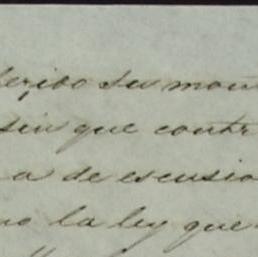 su
sin que contr
a de escusio
no la ley que